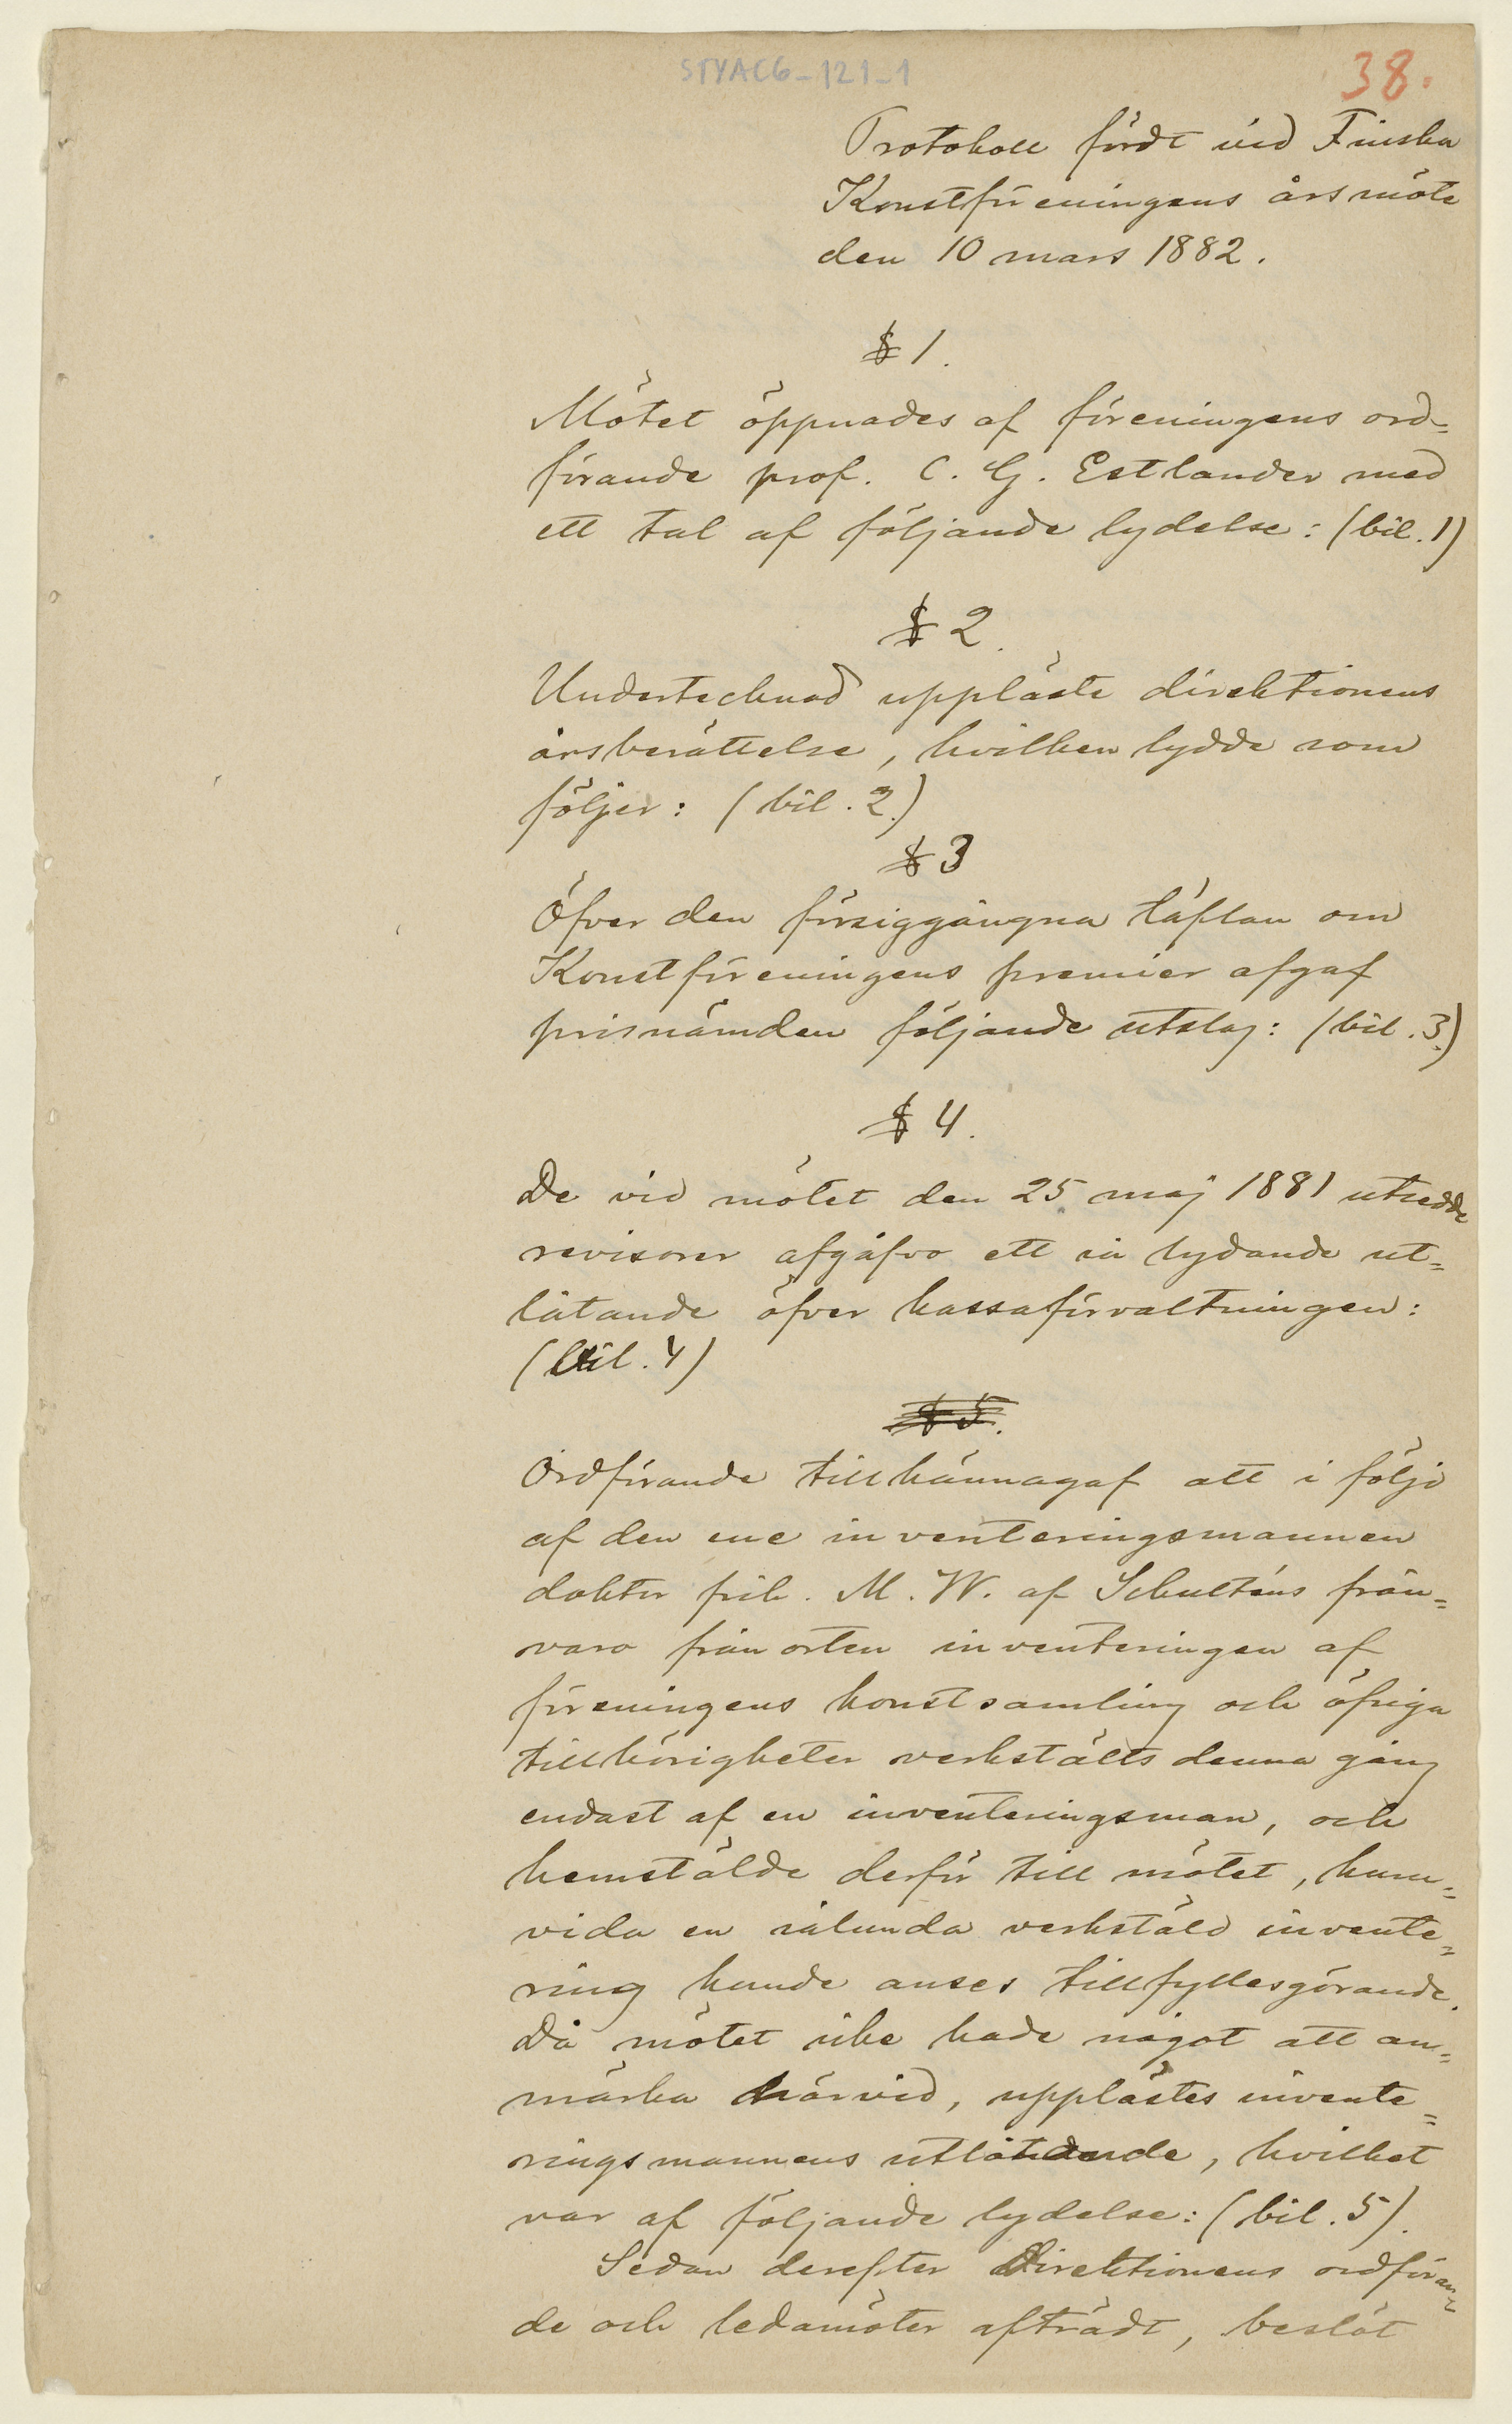 STYAC6-121-1
38.
Protokoll fördt vid Finska
Konstföreningens årsmöte
den 10 mars 1882.
§ 1.
Mötet öppnades af föreningens ord=
förande prof. C. G. Estlander med
ett tal af följande lydelse: (bil. 1)
§ 2.
Undertecknad uppläste direktionens
årsberättelse, hvilken lydde som
följer: (bil. 2.)
§ 3
Öfver den försiggångna täflan om
Konstföreningens premier afgaf
prisnämden följande utslag: (bil. 3.)
§ 4.
De vid mötet den 25. maj 1881 utsedde
revisorer afgåfvo ett så lydande ut=
låtande öfver kassaförvaltningen:
(bil. 4)
§ 5.
Ordförande tillkännagaf att i följd
af den ene inventeringsmannen
doktor frih. M. W. af Schulténs från=
varo från orten inventeringen af
föreningens konstsamling och öfriga
tillhörigheter verkstälts denna gång
endast af en inventeringsman, och
hemstälde derför till mötet, huru=
vida en sålunda verkstäld invente=
ring kunde anses tillfyllesgörande.
Då mötet icke hade något att an=
märka härvid, upplästes invente=
ringsmannens utlåtande, hvilket
var af följande lydelse: (bil. 5).
Sedan derefter Direktionens ordföran=
de och ledamöter afträdt, beslöt